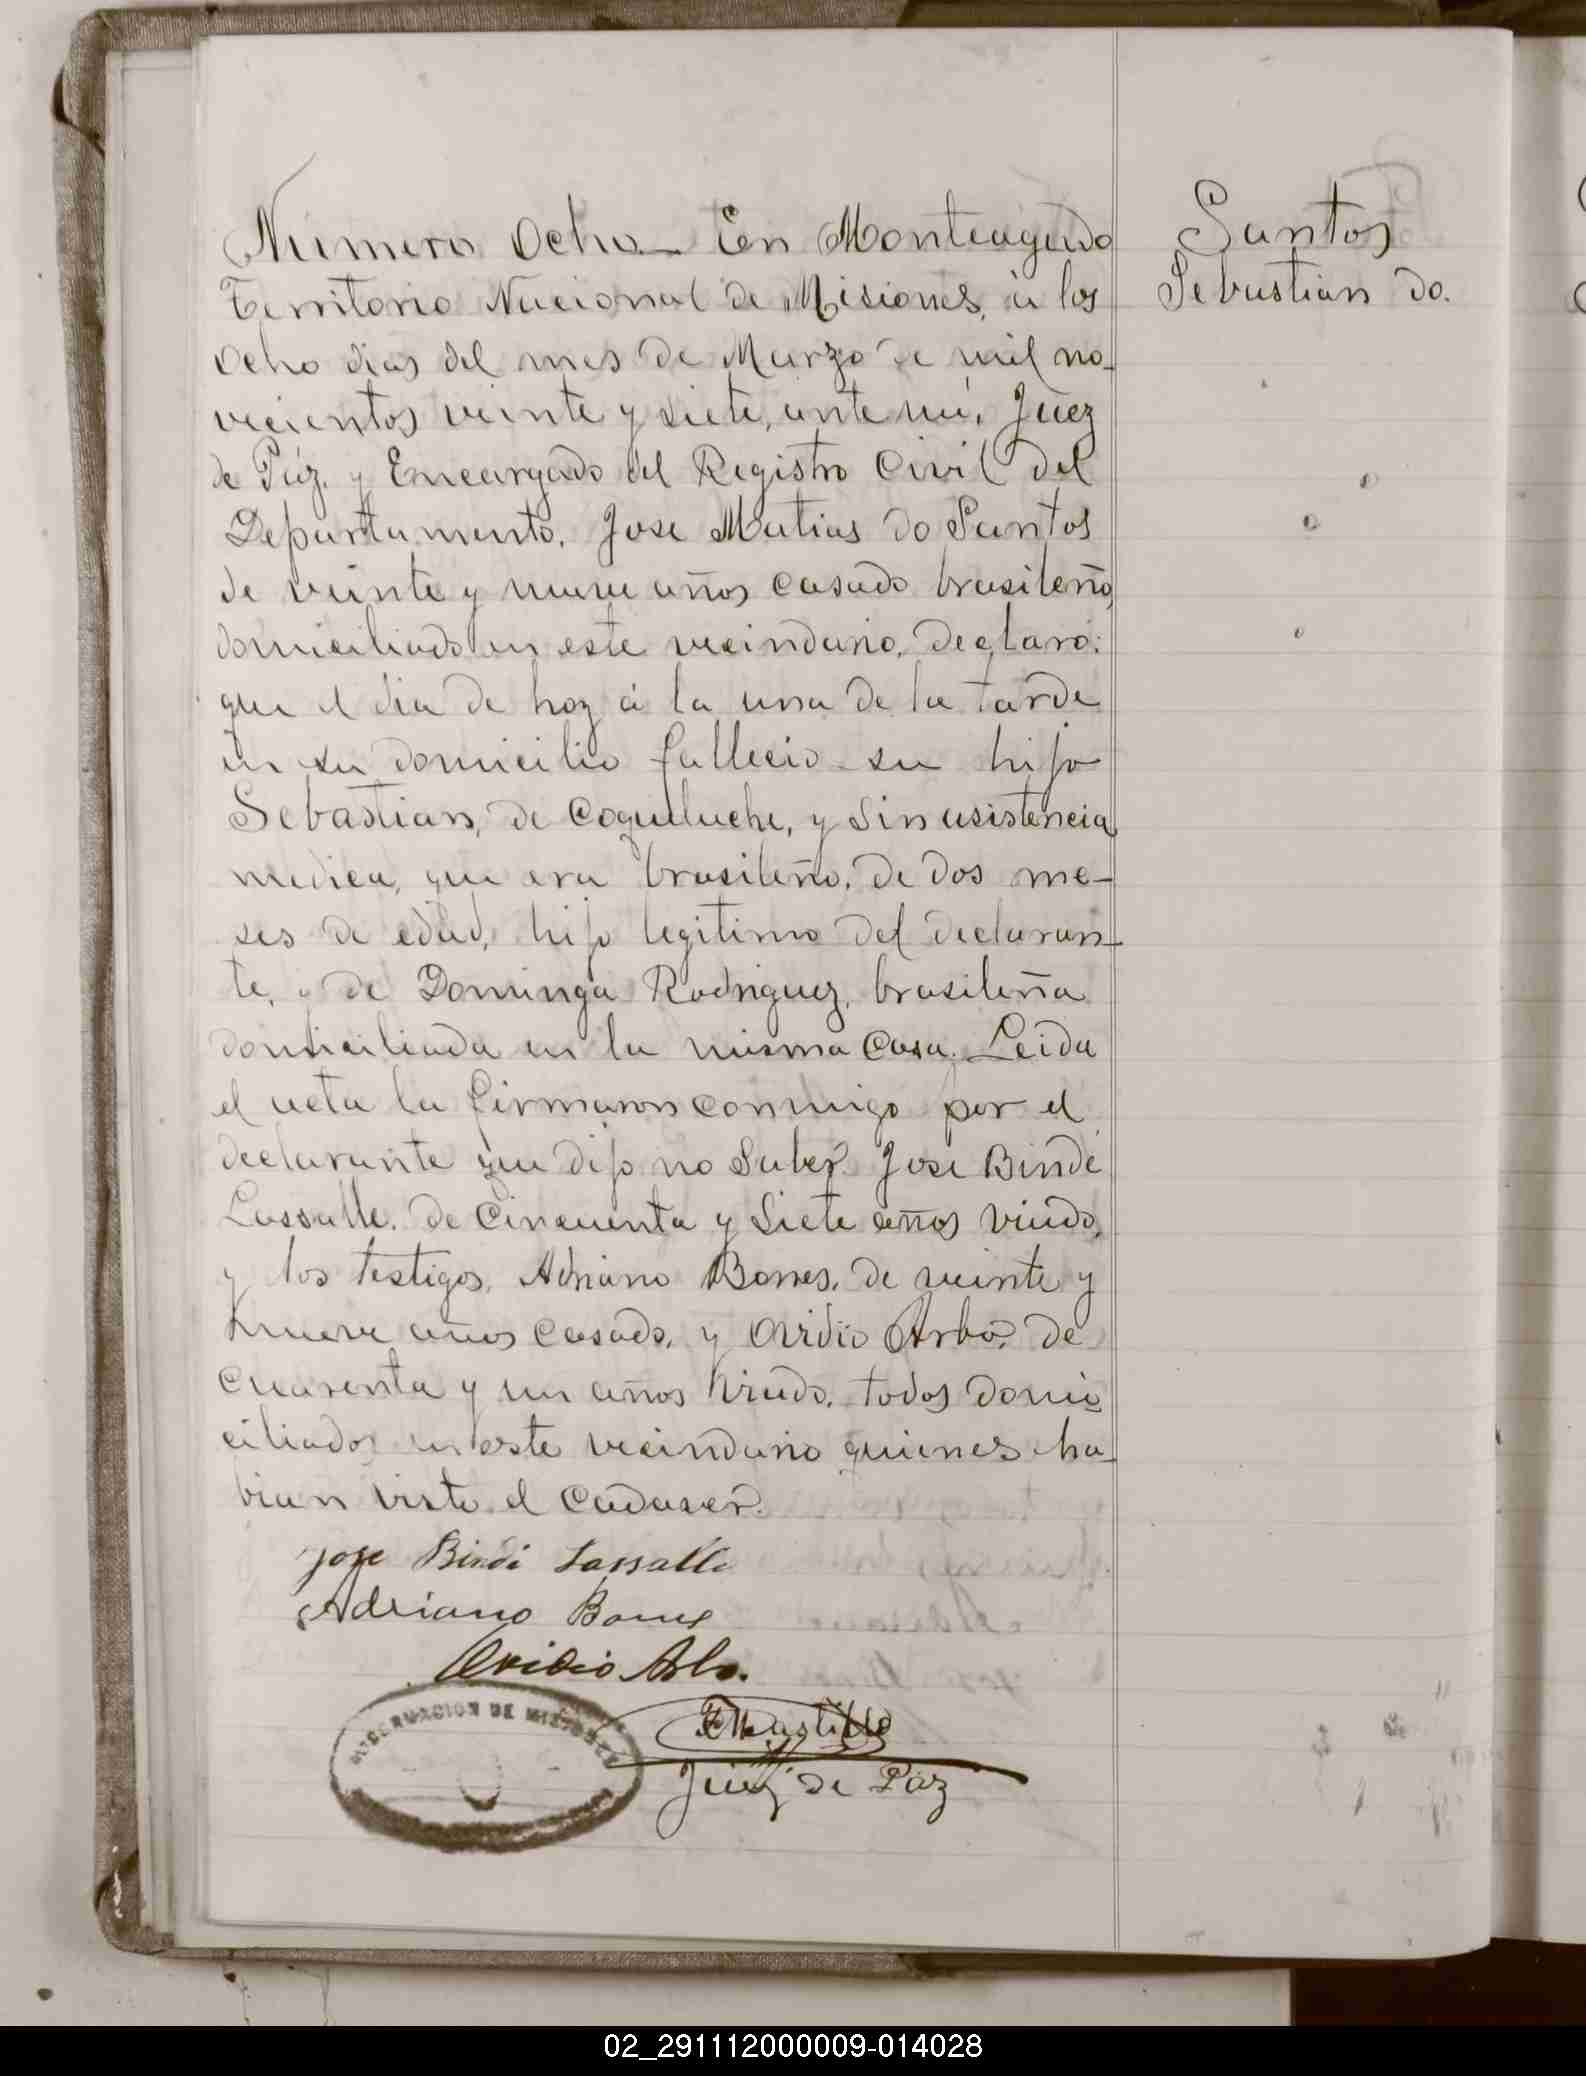 Número Ocho_ En Monteagudo
Territorio Nacional de Misiones, á los
Ocho dias del mes de Marzo de mil no_
vecientos veinte y siete, ante mí, Júez
de Páz, y Encargado del Registro Civil del
Departamento, Jose Matias do Santos
de veinte y nueve años casado brasileño,
domiciliado en este vecindario, declaró:
que el dia de hoy á la una de la tarde
en su domicilio fallecio su hijo
Sebastian, de Coqueluche, y Sin asistencia
medica, que era brasileño, de dos me-
ses de edad, hijo legitimo del declaran_
te, y de Dominga Rodriguez, brasileña
domiciliada en la misma Casa. Leida
el acta la firmaron conmigo por el
declarante que dijo no Saber Jose Bindé
Lassalle, de Cincuenta y Siete años viudo,
y los testigos, Adriano Bornes, de veinte y
nueve años casado, y Ovidio Arbó, de
Cuarenta y un años viudo, todos domi
ciliados en este vecindario quienes ha_
bian visto el Cadaver.
Santos
Sebastian do.
Jose Bindé Lassalle
Adriano Bornes
Ovidio Arbo.
Júez de Páz
GOBERNACION DE MISIONES
02_291112000009-014028